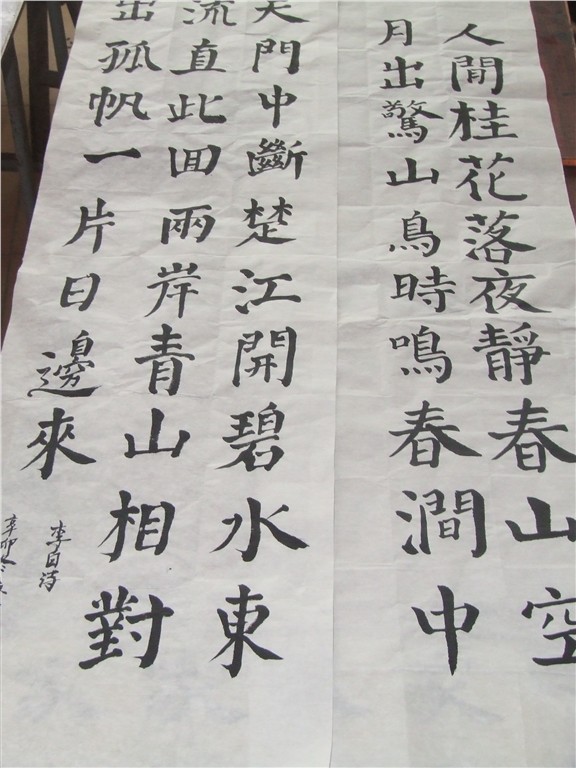 人閒桂花落夜靜春山空
月出驚山鳥時鳴春澗中
天門中斷楚江開碧水東
流直此囬兩岸青山相對
出孤帆一片日邊來
李白诗
辛卯